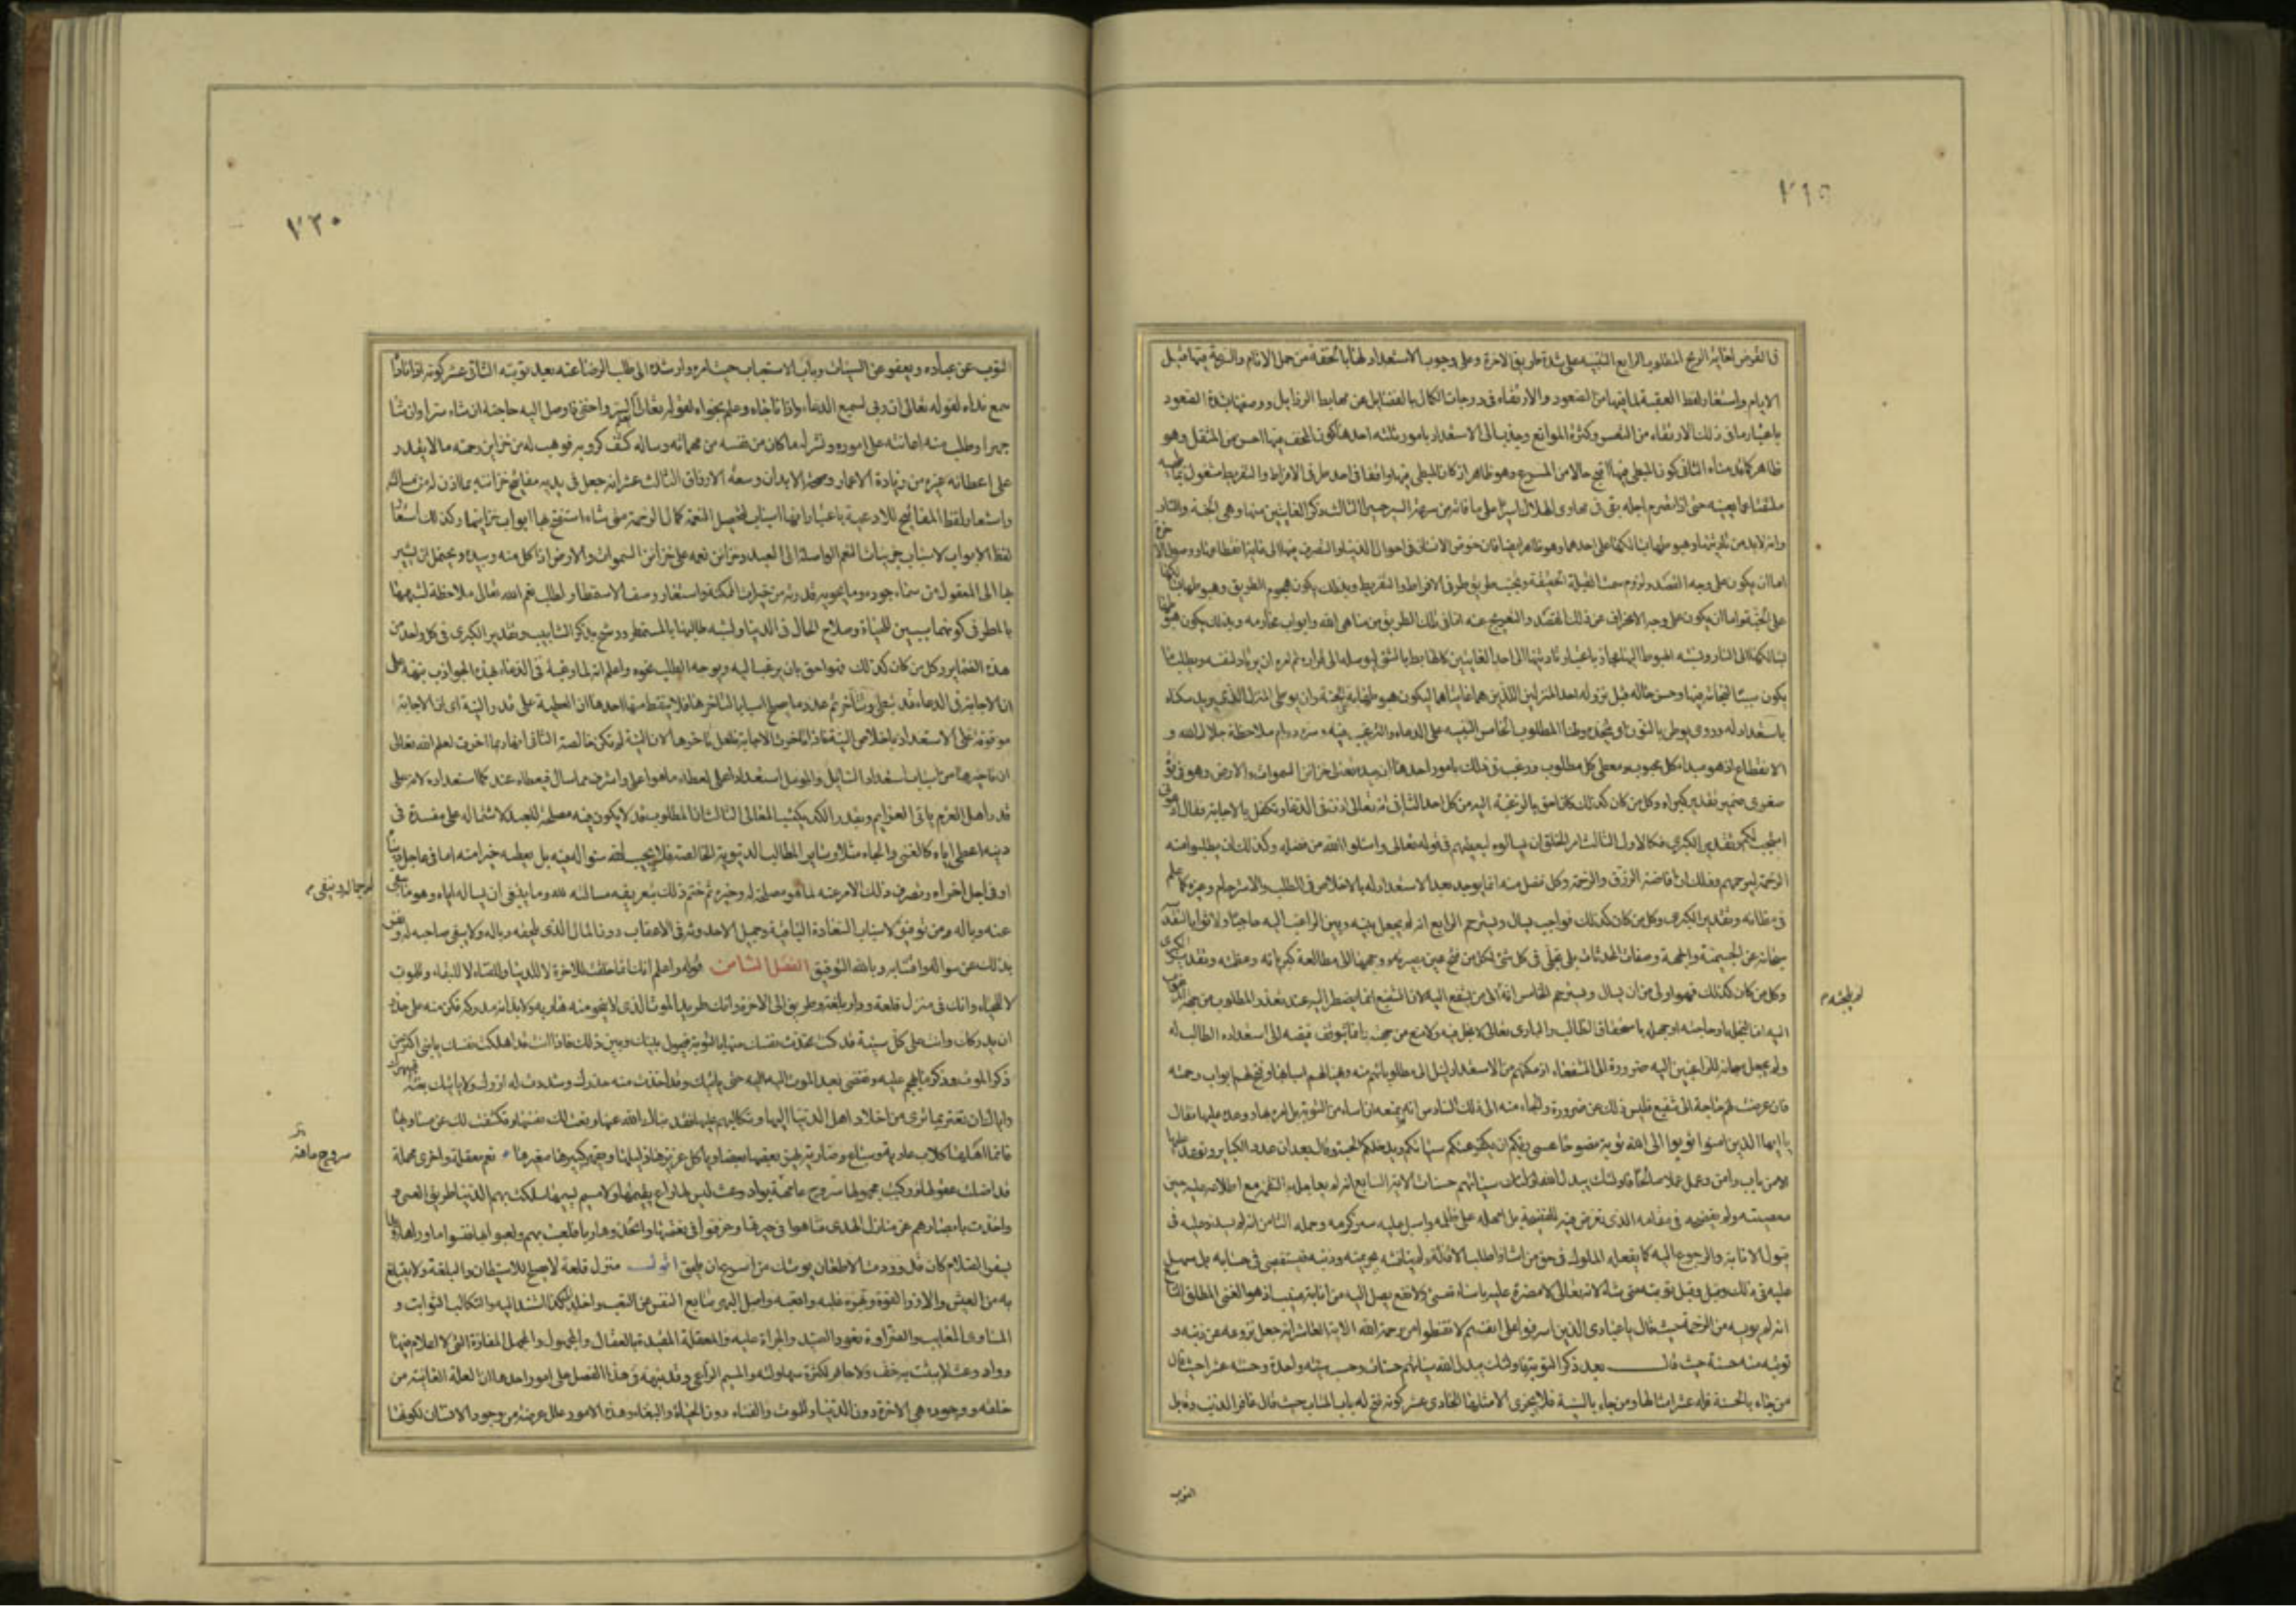 ٧١٩
في القرض لغاية الربح المطلوب الرابع التنبيه على شدة طريق الاخرة وعلى وجوب الاستعداد لها بالخفة من حمل الاثام والسرعة فيها قبل
الايام واستعار لفظ العقبة لما فيها من الصعود والارتقاء في درجات الكمال بالفضايل عن مهابط الرذايل ووصفها بشدة الصعود
باعتبار ما في ذلك الارتقاء من العسر وكثرة الموانع وجذب الى الاستعداد بامور ثلثه احدها كون المخف فيها احسن من المثقل وهو
ظاهر الثاني كون المبطى فيها اقبح حالا من المسرع وهو ظاهر اذ كان المبطى فيها واقفا في احد طرفى الافراط والتفريط مشغول
حتى اذا انصرم اجله بقى في مهاوى الهلاك الثالث ذكر الغايتين منها وهي الجنة والنار
وانه لابد من تاديتها وهبوطها بسالكها على احدهما وهو ظاهر ايضا فان خوض الانسان في احوال الدنيا والتصرف فيها
اما ان يكون على وجه القصد ولزوم سمت القبلة الحقيقة وتجنب طريق طرفى الافراط والتفريط وبذلك يكون هجوم الطريق وهبوطها
على الجنة واما ان يكون على وجه الانحراف عن ذلك القصد والتعريج عنه الى تلك الطريق من مناهى الله وابواب محارمه وبذلك يكون
بسالكها الى النار ونسبه الهبوط اليها مجاز باعتبار تاديتها الى احد الغايتين كالهابط بالشى ليوصله الى قراره ثم امره ان يرتاد لنفسه ويطلب
يكون سببا لنجاته فيها وحسن حاله قبل نزوله احد المنزلين اللذين هما غايتاها ليكون هبوطها به الجنة وان يوطى المنزل الذى يريد سكناه
باستعداد له وروى يوطن بالنون اي يتخذه وطنا المطلوب الخامس التنبيه على الدعاء والترغيب فيه وسره دوام ملاحظة جلال الله و
الانقطاع اذ هو مبداء كل محبوب ومعطى كل مطلوب ورغب في ذلك بامور احدها ان بيده تعالى خزائن السموات والارض وهو في قوة
صغرى ضمير تقدير كبراه وكل من كان كذلك كان احق بالرغبة اليه من كل احد الثاني انه تعالى اذن في الدعاء وتكفل بالاجابة فقال ادعوني
استجب لكم وتقدير الكبرى فكالاول الثالث امر الخلق ان يسالوه ليعطيهم في قوله تعالى واسئلوا الله من فضله وكذلك ان يطلبوا منه
الرحمة ليرحمهم وذلك ان افاضة الرزق والرحمة وكل فضل منه انما يوجد بعد الاستعداد له بالاخلاص في الطلب والاسترحام وغيره كما علم
في مظانه وتقدير الكبرى وكل من كان كذلك فواجب ان يسال ويسترحم الرابع انه لم يجعل بينه وبين الراغب اليه حاجبا ولا بوابا
سبحانه عن الجسمية والجهة وصفات المحدثات بل تجلى في كل شئ لكل من فتح عين بصيرته ووجهها الى مطالعة كبريائه وعظمته وتقدير الكبرى
وكل من كان كذلك فهو اولى من ان يسال ويسترحم الخامس انه الى من يشفع اليه لان الشفيع انما يضطر اليه عند تعذر المطلوب من جهة المرغوب
اليه اما لبخله او حاجته او جهله باستحقاق الطالب والبارى تعالى لا بخل فيه ولا منع من جهته وانما يتوقف فيضه الى استعداده الطالب له
ولم يجعل سبحانه للراغبين اليه ضرورة الى الشفعاء اذ مكنهم من الاستعداد لنيل الى مطلوباتهم منه وهيا لهم اسبابها وفتح لهم ابواب رحمته
فان عرضت لهم حاجة الى شفيع فليس ذلك عن ضرورة والجاء منه الى ذلك السادس انه لم يمنعه ان اساء من التوبة بل امر بها ووعد عليها فقال
يا ايها الذين امنوا توبوا الى الله توبة نصوحا عسى ربكم ان يكفر عنكم سيئاتكم ويدخلكم الجنة وقال بعد ان عدد الكبائر وتوعد عليها
الا من تاب وامن وعمل عملا صالحا فاولئك يبدل الله سيئاتهم حسنات الاية السابع انه لم يعاجله بالنقمة مع اطلاعه عليه حين
معصيته ولم يفضحه في مقامه الذى تعرض فيه للفضيحة بل امهله على ظلمه واسبل عليه ستره وكرمه وحمله الثامن انه لم يشدد عليه في
قبول الانابة والرجوع اليه كما يفعله الملوك في حق من اساء اذا طلب الاقالة ولم يناقشه بجريمته وذنبه فيستقصى في حسابه بل سهل
عليه في ذلك وقبل توبته متى شاء لانه تعالى لا مضرة عليه باساءة مسئ ولا نفع يصل اليه من انابة منيب اذ هو الغنى المطلق التاسع
انه لم يويسه من الرحمة حيث قال يا عبادى الذين اسرفوا على انفسهم لا تقنطوا من رحمة الله الاية العاشر انه جعل نزوعه عن ذنبه و
توبته منه حسنة حيث قال بعد ذكر التوبة فاولئك يبدل الله سيئاتهم حسنات وحسب سيئته واحدة وحسنته عشرا حيث قال
من جاء بالحسنة فله عشر امثالها ومن جاء بالسيئة فلا يجزى الا مثلها الحادى عشر كونه فتح له باب المتاب حيث قال غافر الذنب وقابل
التوب
٧٢٠
التوب عن عباده ويعفو عن السيئات وباب الاستعتاب حيث امره وارشده الى طلب الرضا عنه بعد توبته الثاني عشر كونه اذا ناداه
سمع نداه لقوله تعالى ان ربى لسميع الدعاء واذا ناجاه وعلم نجواه لقوله تعالى السر واخفى فاوصل اليه حاجته ان شاء سرا وان شاء
جهرا وطلب منه اعانته على اموره ما كان من نفسه من مهماته وساله كشف كروبه فوهب له من خزاين رحمته ما لا يقدر
على اعطائه غيره من زيادة الاعمار وصحة الابدان وسعة الارزاق الثالث عشر انه جعل في يديه مفاتيح خزائنه بما اذن له من مسالته
واستعار لفظ المفاتيح للادعية باعتبار انها اسباب لتحصيل النعمة كمال الرحمة متى شاء استفتح بها ابواب خزاينها وكذلك استعار
لفظ الابواب لاسباب جزييات النعم الواصلة الى العبد وخزائن نعمه على خزائن السموات والارض اذ الكل منه وبيده ويحتمل ان يشير
بها الى المعقول من سماء جوده وما يحويه قدرته من الخيرات الممكنة واستعار وصف الاستمطار لطلب نعم الله تعالى ملاحظة لشبهها
بالمطر في كونهما سببين للحياة وصلاح الحال في الدنيا ولشبه طالبها بالمستمطر ورشح بذكر الشابيب وتقدير الكبرى في كل واحد من
هذه الضماير وكل من كان كذلك فهو احق بان يرغب اليه ويوجه الطلب نحوه واعلم انه لما رغبه في الدعاء بهذه الجواذب نبهه على
ان الاجابة في الدعاء قد تبطى وتتأخر ثم عدد ما يصلح اسبابا لتاخرها فلا يقنط منها احدها ان العطية على قدر النية اى ان الاجابة
موقوفة على الاستعداد باخلاص النية فاذا تاخرت الاجابة فلعل تاخرها لان النية لم تكن خالصة الثاني انها ربما اخرت لعلم الله تعالى
ان تاخيرها من اسباب استعداد السائل والمومل استعدادا اعلى لعطاء ما هو اعلى واشرف مما سال فيعطاه عند كمال استعداده لانه على
قدر اهل العزم ياتى العزايم وبقدر الكد يكتسب المعالى الثالث ان المطلوب قد لا يكون فيه مصلحة للعبد لاشتماله على مفسدة في
دينه اعطى اياه كالغنى والجاه مثلا وساير المطالب الدنيوية الخالصة فلا يجيب الله سؤاله فيه بل يعطيه خيرا منه اما في عاجل
او في اجل اخراه وتصرف ذلك الامر عنه لما هو مصلحة له وخير ثم ختم ذلك بتعريفه مسالته لله وما ينبغى ان يساله اياه وهو ما يبقى
له جماله وينفى
عنه وباله ومن توفيق لاسباب السعادة الباقية وجميل الاحدوثة في الاعقاب دون المال الذى يلحقه وباله ولا يبقى صاحبه له
بذلك عن سواله وامثاله وبالله التوفيق الفصل الثامن قوله واعلم انك انما خلقت للاخرة لا للدنيا وللفناء لا للبقاء وللموت
لا للحياة وانك في منزل قلعة ودار بلغة وطريق الى الاخرة وانك طريد الموت الذى لا ينجو منه هاربه ولابد انه مدركه فكن منه على حذر
ان يدركك وانت على كل سيئة قد كنت تحدث نفسك منها بالتوبة فيحول بينك وبين ذلك فاذا انت قد اهلكت نفسك يا بنى اكثر من
ذكر الموت وذكر ما تهجم عليه وتفضى بعد الموت اليه حتى ياتيك وقد اخذت منه حذرك وشددت له ازرك ولا ياتيك بغتة فيبهرك
واياك ان تغتر بما ترى من اخلاد اهل الدنيا اليها وتكالبهم عليها فقد نباك الله عنها ونعت لك نفسها وتكشفت لك عن مساويها
فانما اهلها كلاب عاوية وسباع ضارية يهر بعضها بعضا وياكل عزيزها ذليلها ويقهر كبيرها صغيرها نعم معقلة واخرى مهملة
قد اضلت عقولها وركبت مجهولها سروح عاهة بواد وعث ليس لها راع يقيمها ولا مسيم يسيمها سلكت بهم الدنيا طريق العمى و
سروح عاهة
واخذت بابصارهم عن منازل الهدى فتاهوا في حيرتها وغرقوا في نعمتها واتخذوها ربا فلعبت بهم ولعبوا بها ونسوا ما وراءها
يسفر الظلام كان قد وردت الاظعان يوشك من اسرع ان يلحق اقول منزل قلعة لا يصلح للاستيطان والبلغة ما يتبلغ
به من العيش والازر القوة وبهره غلبه واتعبه واصله البهر تتابع النفس عن التعب واخلد الى كذا استند اليه والتكالب التواثب و
المساوى المعايب والضراوة تعود الصيد والجراة عليه والمعقلة المقيدة بالعقال والمجهول والمجهل المفازة التي لا اعلام فيها
وواد وعث لا يثبت به خف ولا حافر لكثرة سهولته والمسيم الراعى وقد نبه في هذا الفصل على امور احدها ان العلة الغائية من
خلقه ووجوده هي الاخرة دون الدنيا والموت والفناء دون الحياة والبقاء وهذه الامور علل عرضية من وجود الانسان لكونها